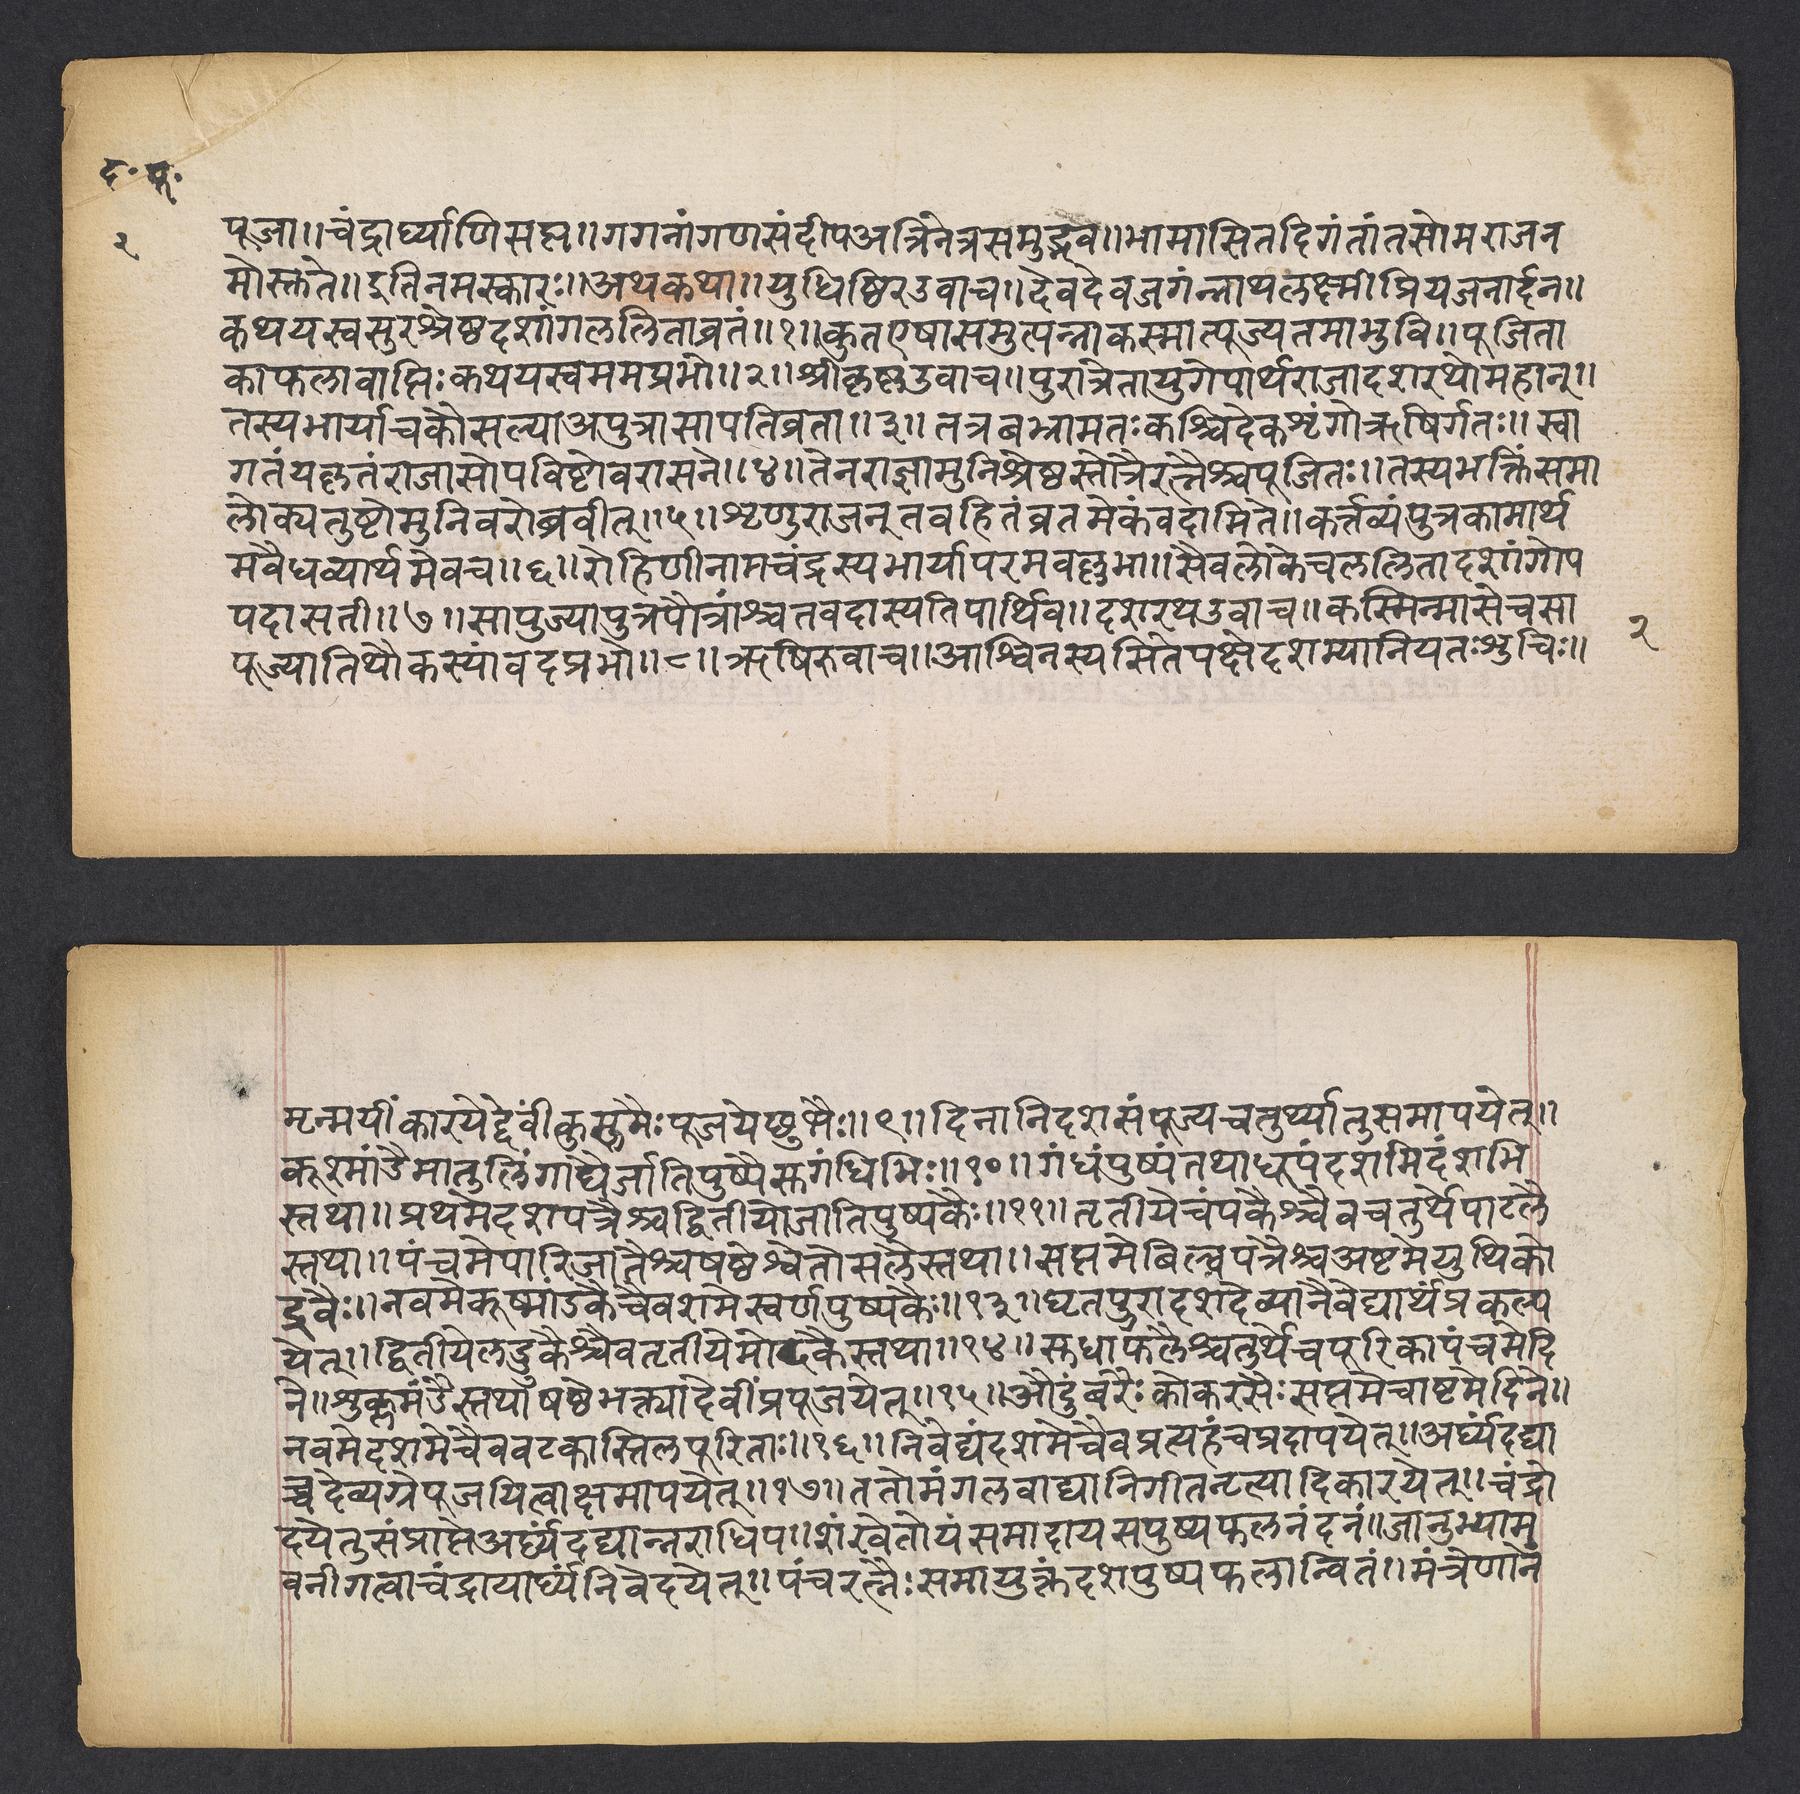 द॰ पू॰
२
पूजा॥चंद्रार्घ्याणिसप्त॥गगनांगणसंदीपअत्रिनेत्रसमुद्भव॥भाभासितदिगंतांतसोमराजन
मोस्तुते॥इतिनमस्कारः॥अथकथा॥युधिष्ठिरउवाच॥देवदेवजगंन्नाथलक्ष्मीप्रियजनार्दन॥
कथयस्वसुरश्रेष्ठदशांगललिताव्रतं॥१॥कुतएषासमुत्पन्नाकस्मात्पूज्यतमाभुवि॥पूजिता
काफलावाप्तिःकथयस्वममप्रभो॥२॥श्रीकृष्णउवाच॥पुरात्रेतायुगेपार्थराजादशरथोमहान्॥
तस्यभार्याचकौसल्याअपुत्रासापतिव्रता॥३॥तत्रबभ्रामतःकश्चिदेकशृंगोऋषिर्गतः॥स्वा
गतंयत्कृतंराजासोपविष्टोवरासने॥४॥तेनराज्ञामुनिश्रेष्ठस्तोत्रैरत्नैश्चपूजितः॥तस्यभक्तिंसमा
लोक्यतुष्टोमुनिवरोब्रवीत्॥५॥शृणुराजन्तवहितंव्रतमेकंवदामिते॥कर्त्तव्यंपुत्रकामार्थ
मवैधव्यार्थमेवच॥६॥रोहिणीनामचंद्रस्यभार्यापरमवल्लभा॥सैवलोकेचललितादशांगोप
पदासती॥७॥सापुज्यापुत्रपौत्रांश्चतवदास्यतिपार्थिव॥दशरथउवाच॥कस्मिन्मासेचसा
पूज्यातिथौकस्यांवदप्रभो॥८॥ऋषिरुवाच॥आश्विनस्यसितेपक्षेदशम्यानियतःशुचिः॥
२
मृन्मयींकारयेद्देवींकुसुमैःपूजयेछुभैः॥९॥दिनानिदशसंपूज्यचतुर्थ्यातुसमापयेत्॥
कूश्मांडैमातुलिंगाद्यैर्जातिपुष्पैसुगंधिभिः॥१०॥गंधंपुष्पंतथाधूपंदशभिदंशभि
स्तथा॥प्रथमेदशपत्रैश्चद्वितीयोजातिपुष्पकैः॥११॥तृतीयेचंपकैश्चैवचतुर्थेपाटलै
स्तथा॥पंचमेपारिजातैश्चषष्ठेश्वेतोसलैस्तथा॥सप्तमेबिल्वपत्रैश्चअष्टमेयुथिको
द्भवैः॥नवमेकूष्मांडकैचैवशमेस्वर्णपुष्पकैः॥१३॥घृतपुरादशदेव्यानैवेद्यार्थंप्रकल्प
येत्॥द्वितीयेलडुकैश्चैवतृतीयेमोदकैस्तथा॥१४॥सुधाफलैश्चतुर्थेचपूरिकापंचमेदि
ने॥शुक्लमंडैस्तथाषष्ठेभक्त्यादेवींप्रपूजयेत्॥१५॥औदुंबरैःकोकरसैःसप्तमेचाष्टमेदिने॥
नवमेदशमेचैववटकास्तिलपूरिताः॥१६॥निवेद्यंदशमेचैवप्रत्यहंचप्रदापयेत्॥अर्घ्यंदद्या
च्चदेव्यग्रेपूजयित्वाक्षमापयेत्॥१७॥ततोमंगलवाद्यानिगीतनृत्यादिकारयेत्॥चंद्रो
दयेतुसंप्राप्तेअर्घ्यंदद्यान्नराधिप॥शंखेतोयंसमादायसपुष्पफलनंदनं॥जानुभ्याम
वनीगत्वाचंद्रायार्घ्यंनिवेदयेत्॥पंचरत्नैःसमायुक्तंदशपुष्पफलान्वितं॥मंत्रेणाने